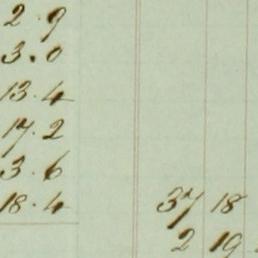 2.9
3.0
13.4
17.2
3.6
18.4 37 18
2 19